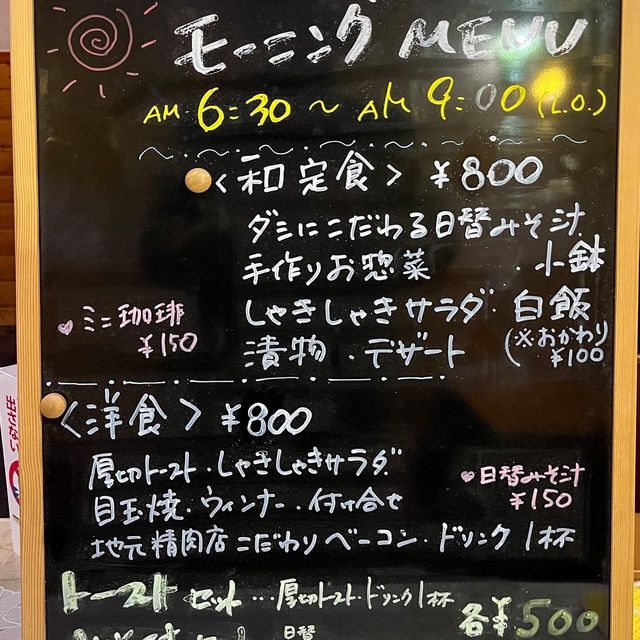 モーニング MENU
AM 6:30 〜 AM 9:00 (L.O.)
〈和定食〉 ¥800
ダシにこだわる日替みそ汁
手作りお惣菜 ・小鉢
しゃきしゃきサラダ・白飯
(※おかわり ¥100
漬物・デザート
ミニ珈琲
¥150
〈洋食〉 ¥800
厚切トースト・しゃきしゃきサラダ
目玉焼・ウィンナー・付け合せ
地元精肉店こだわりベーコン・ドリンク1杯
日替みそ汁
¥150
トーストセット…厚切トースト・ドリンク1杯
各¥500
日替